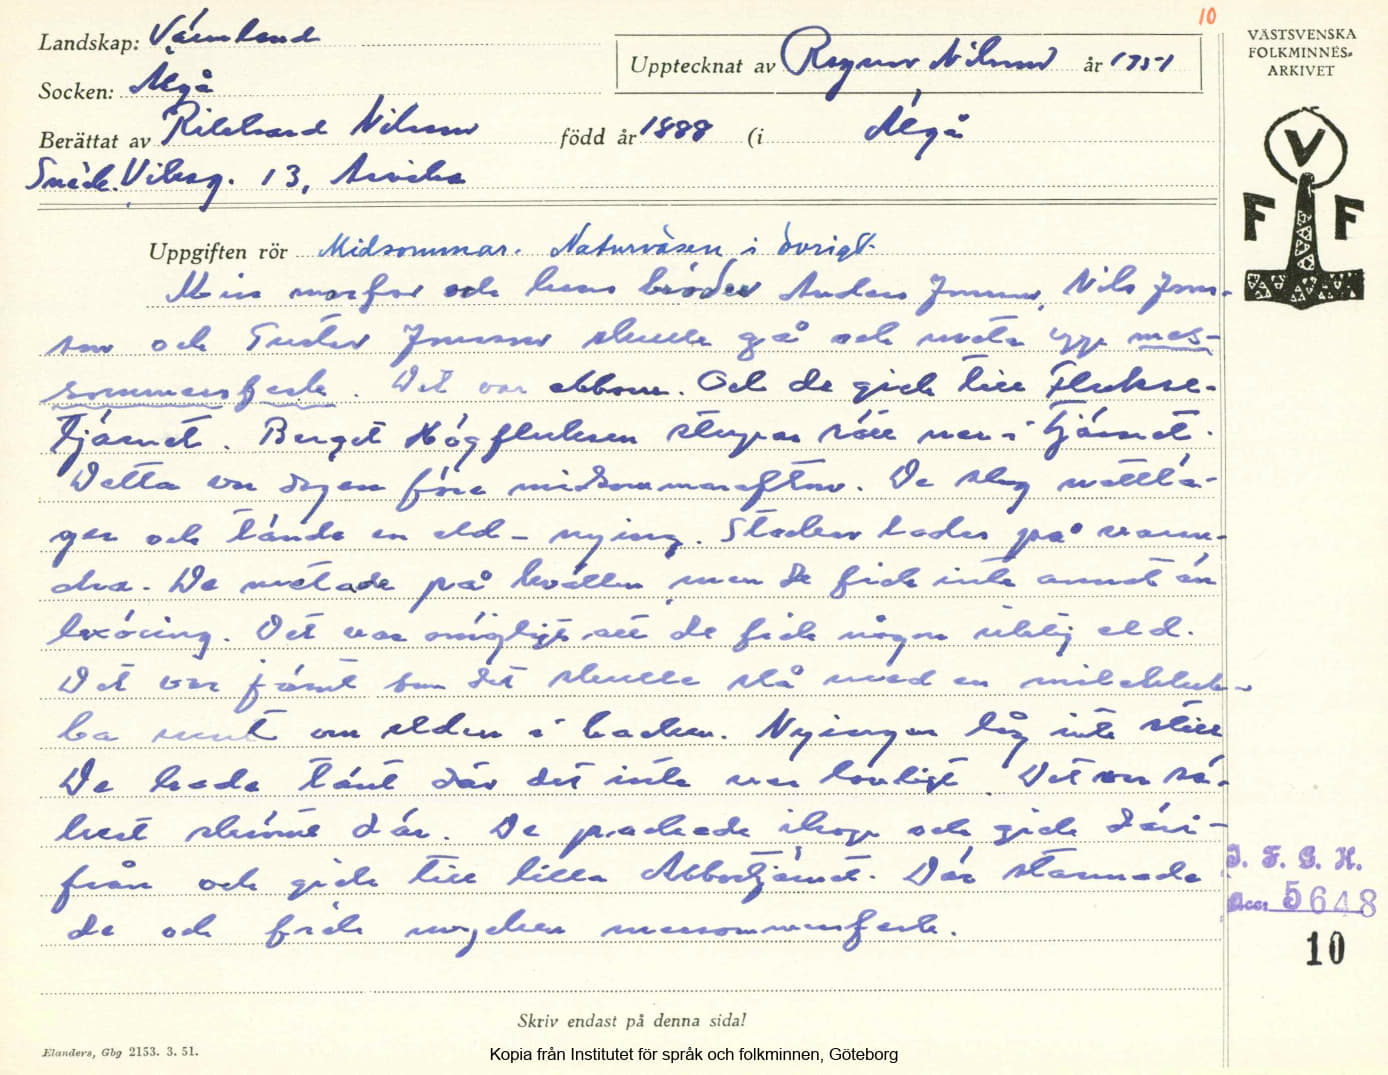 10
Landskap: Värmland
VÄSTSVENSKA
FOLKMINNES-
ARKIVET
Upptecknat av Ragnar Nilsson år 1951
Socken: Älgå
Berättat av Rikhard Nilsson född år 1888 (i Älgå
Snick. Viksg. 13, Arvika
V
F F
Uppgiften rör Midsommar. Naturväsen i övrigt.
Min morfar och hans bröder Anders Jonsson, Nils Jons-
son och Gustav Jonsson skulle gå och meta upp mes-
sommersfesk. Det var abborr. Och de gick till Flukse-
tjärnet. Berget Högfluksen stupar rätt ner i tjärnet.
Detta var dagen före midsommarafton. De slog nattlä-
ger och tände en eld - nying. Stockar lades på varan-
dra. De metade på kvällen, men de fick inte annat än
kräcing. Det var omöjligt att de fick någon riktig eld.
Det var jämt som det skulle slå med en
runt om elden i backen. Nyingen låg inte still
De hade tänt där det inte var lovligt. Det var sä-
kert skrömt där. De packade ihop och gick däri-
från och gick till lilla Abbortjärnet. Där stannade
de och fick mycken messommersfesk.
I. F. G. H.
Acc. 5648
10
Skriv endast på denna sida!
Elanders, Gbg 2153. 3. 51.
Kopia från Institutet för språk och folkminnen, Göteborg